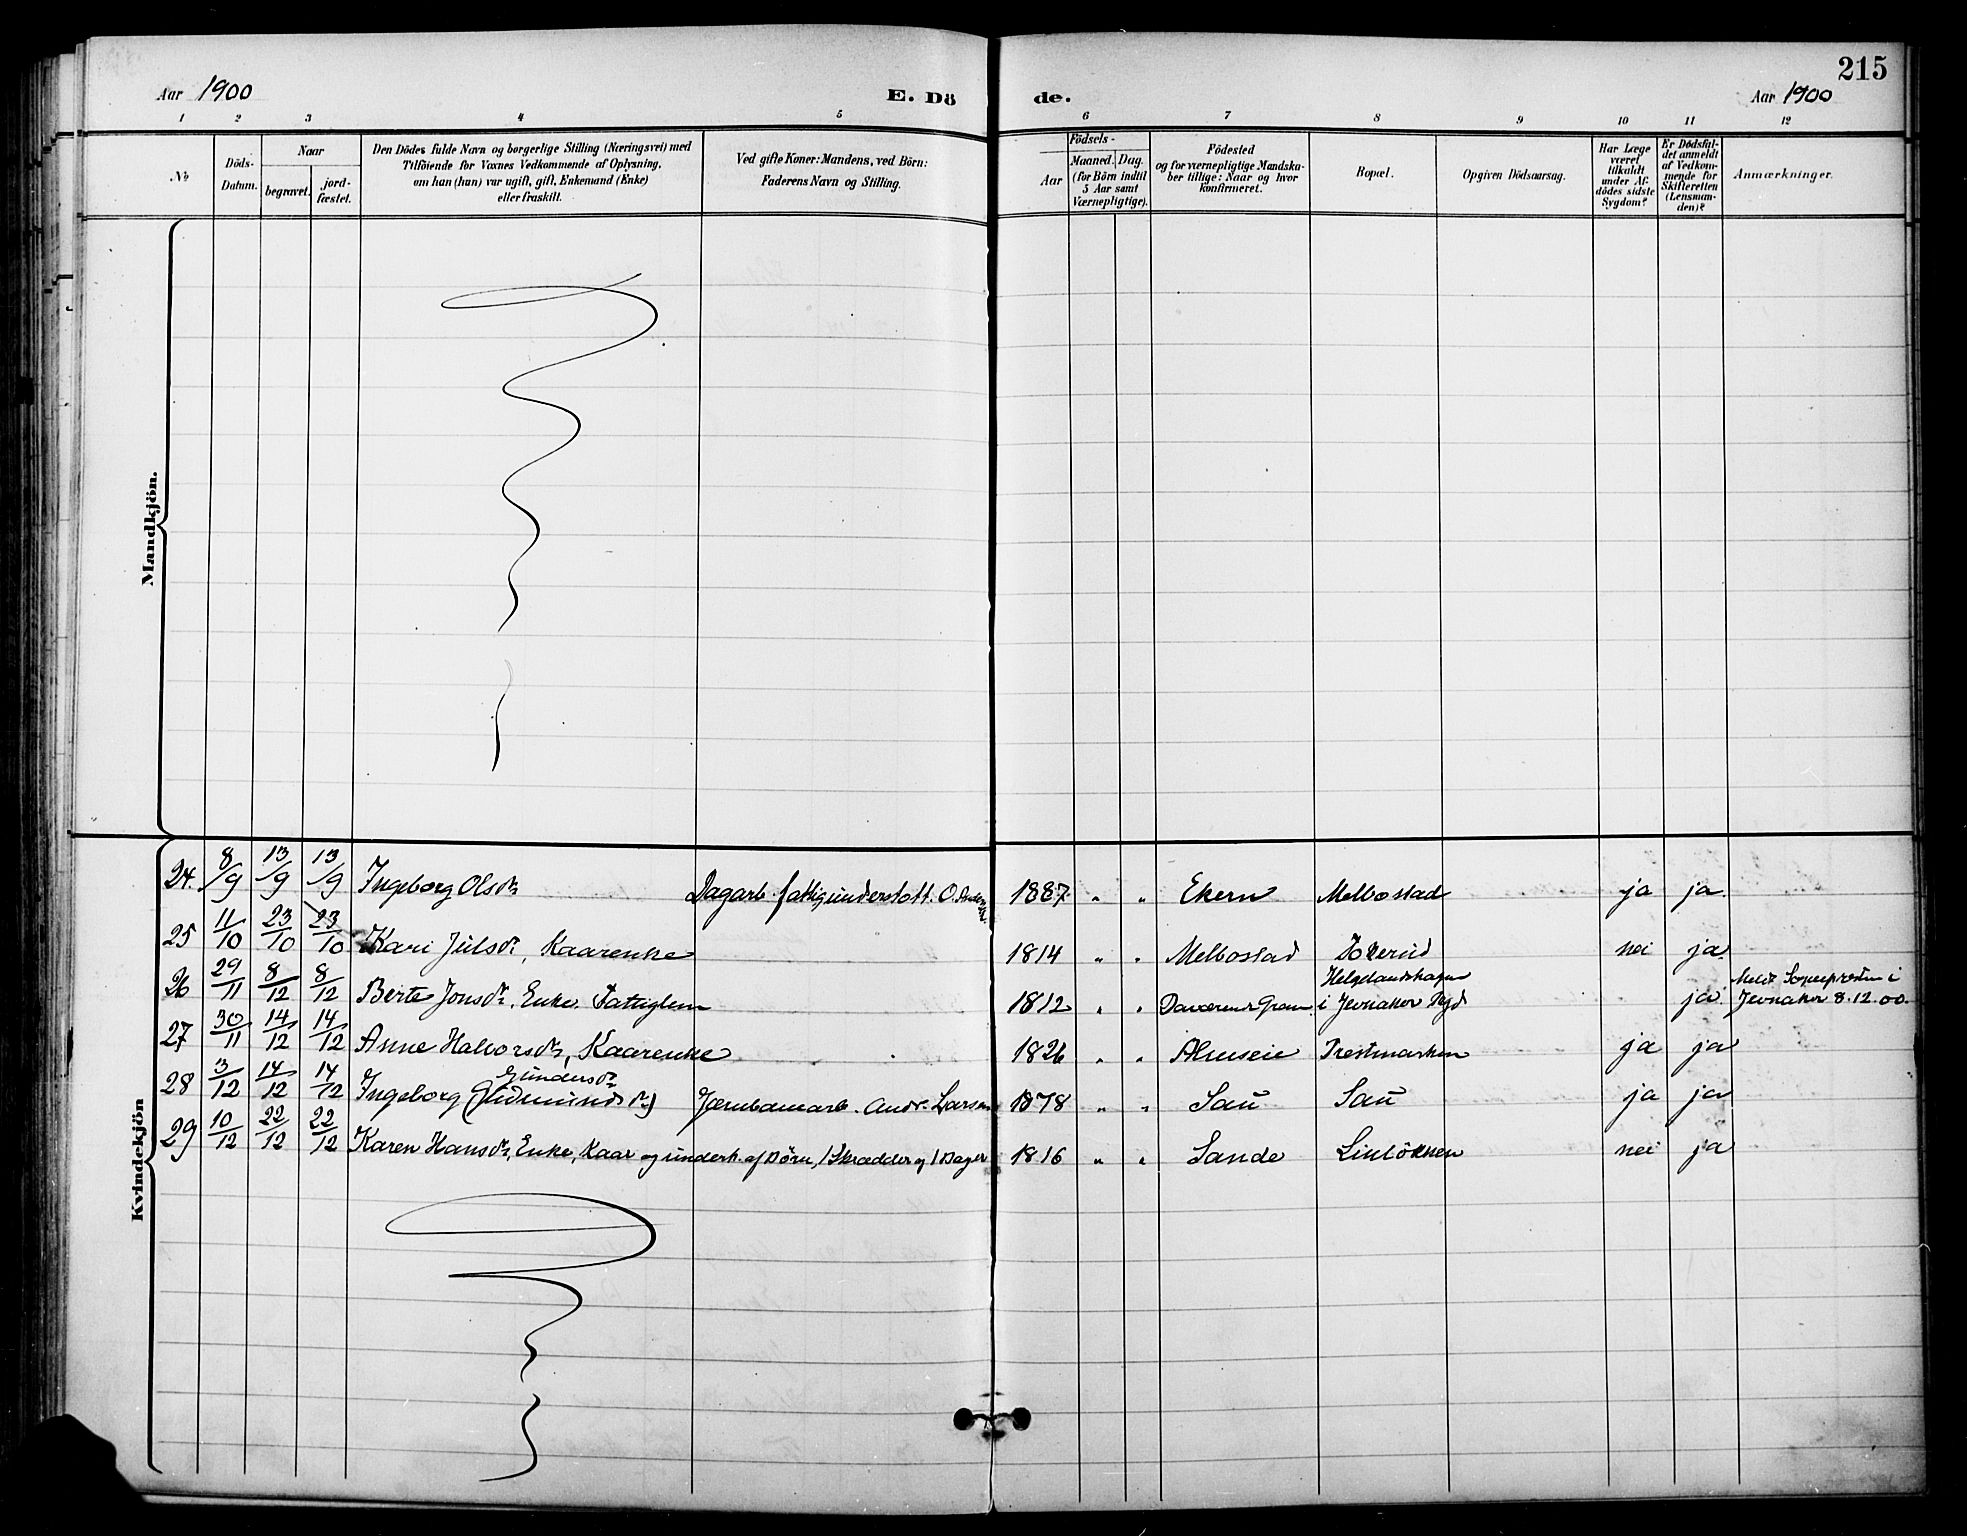 215
Aar 1900
E. Dö
de.
Aar 1900
1 2 3 4 5 6 7 8 9 10 11 12
No
Döds-
Datum.
Naar
begravet.
jord-
fæstet.
Den Dödes fulde Navn og borgerlige Stilling (Næringsvei) med
Tilföiende for Voxnes Vedkommende af Oplysning,
om han (hun) var ugift, gift, Enkemand (Enke)
eller fraskilt.
Ved gifte Koner: Mandens, ved Börn:
Faderens Navn og Stilling.
Födsels-
Aar
Maaned. Dag.
(for Börn indtil
5 Aar samt
Værnepligtige).
Födested
og for værnepligtige Mandska-
ber tillige: Naar og hvor
konfirmeret.
Bopæl.
Opgiven Dödsaarsag.
Har Læge
været
tilkaldt
under Af-
dödes sidste
Sygdom?
Er Dödsfal-
det anmeldt
af Vedkom-
mende for
Skifteretten
(Lensman-
den)?
Anmærkninger.
Mandkjön.
Kvindekjön
24. 8/9 13/9 13/9 Ingeborg Olsdr Dagarb. fattigunderstött. O. 1887 " " Ekern Melbostad ja ja.
25 11/10 23/10 23/10 Kari Julsdr, Kaarenke 1814 " " Melbostad nei ja.
26 29/11 8/12 8/12 Berte Jonsdr. Enke. Fattiglem 1812 " " Gran. Helgelandshagen
i Jevnaker ja. i
Jevnaker 8.12.00.
27 30/11 14/12 14/12 Anne Halvorsdr, Kaarenke 1826 " " Almseie Prestmarken ja ja
28 3/12 14/12 14/12 Gundersdr
Ingeborg (Gudmundsdr) Jernbanearb. Andr. Larsen 1878 " " Sau Sau ja ja
29 10/12 22/12 22/12 Karen Hansdr, Enke, Kaar og underh. af Børn, 1 Skrædder og 1 Dagar 1816 " " Sande Linlökken nei ja